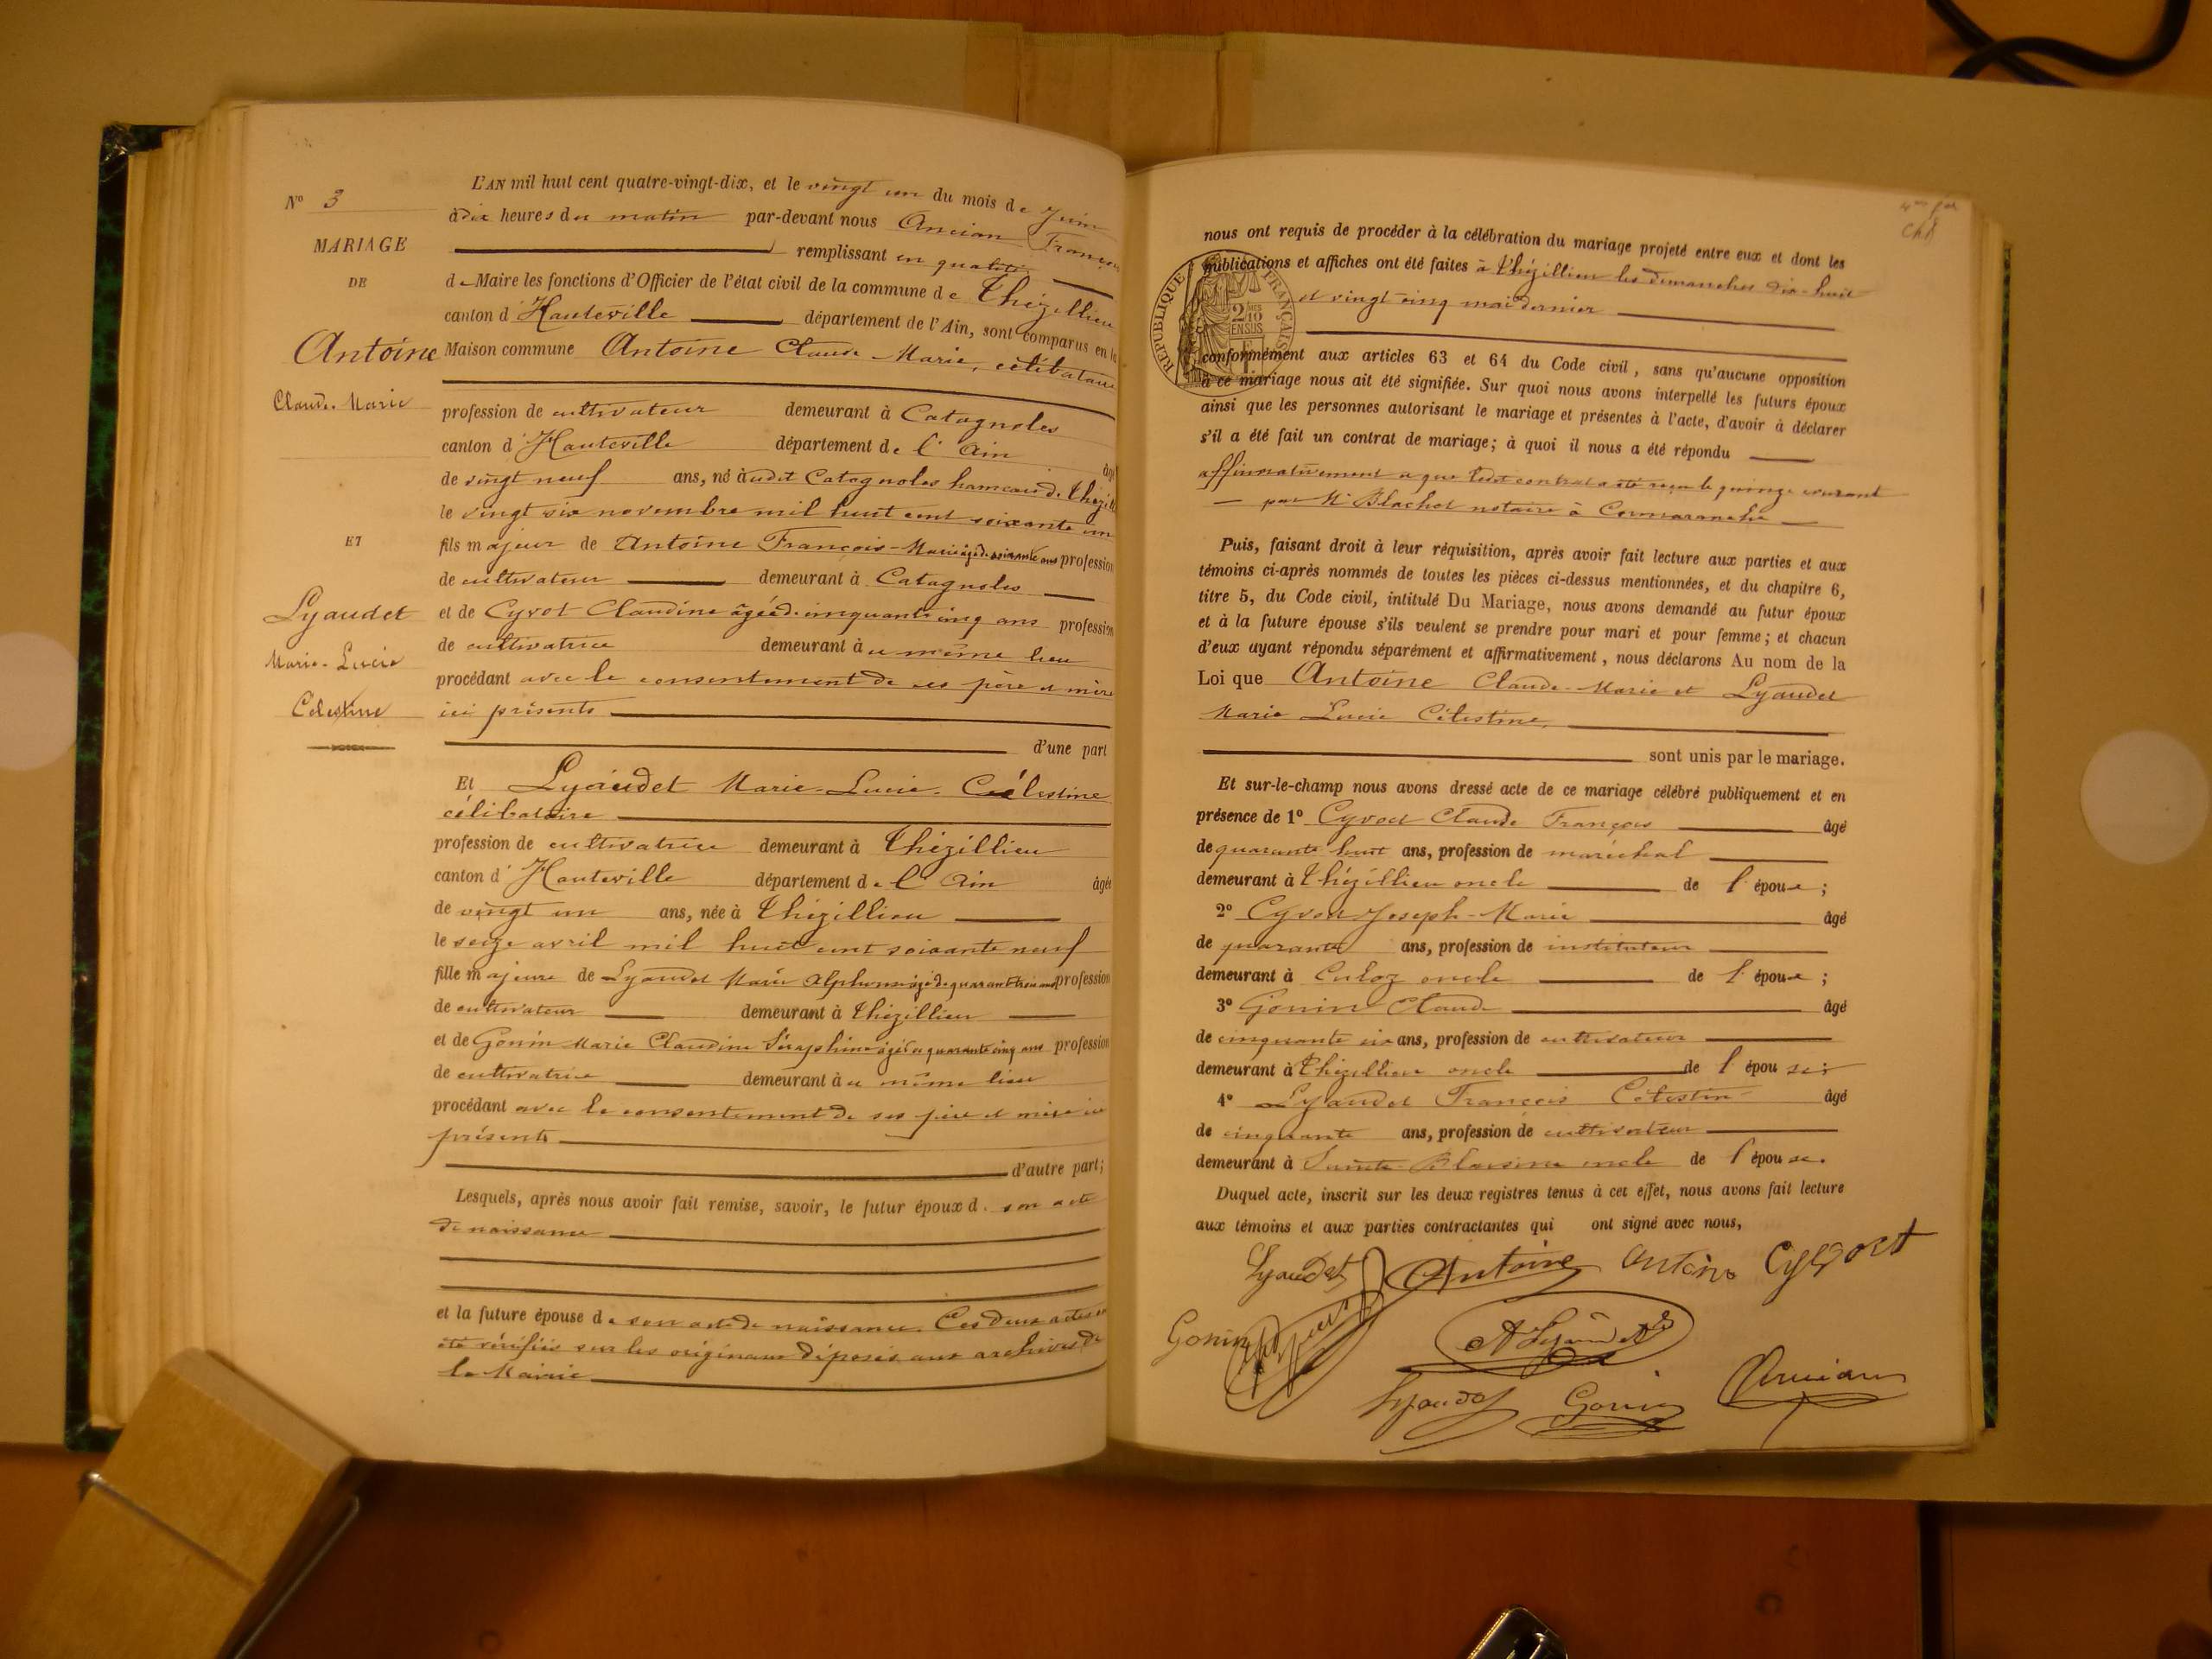 N° 3
MARIAGE
DE
Antoine
Claude-Marie
ET
Lyaudet
Marie-Lucie
Célestine
L'AN mil huit cent quatre-vingt-dix, et le vingt un du mois de Juin
à dix heures du matin par-devant nous Ancian François
remplissant en qualité
de Maire les fonctions d'Officier de l'état civil de la commune de Thézillieu
canton d'Hauteville département de l'Ain, sont comparus en la
Maison commune Antoine Claude-Marie, célibataire
profession de cultivateur demeurant à Catagnoles
canton d'Hauteville département de l'Ain âgé
de vingt neuf ans, né audit Catagnoles hameau de Thézillieu
le vingt six novembre mil huit cent soixante un
fils majeur de Antoine François-Marie âgé de soixante ans profession
de cultivateur demeurant à Catagnoles
et de Cyvot Claudine âgée de cinquante cinq ans profession
de cultivatrice demeurant au même lieu
procédant avec le consentement de ses père et mère
ici présents
d'une part
Et Lyaudet Marie-Lucie-Célestine
célibataire
profession de cultivatrice demeurant à Thézillieu
canton d'Hauteville département de l'Ain âgée
de vingt un ans, née à Thézillieu
le seize avril mil huit cent soixante neuf
fille majeure de Lyaudet Marie Alphonse âgé de quarante trois ans profession
de cultivateur demeurant à Thézillieu
et de Gonin Marie Claudine Séraphine âgée de quarante cinq ans profession
de cultivatrice demeurant au même lieu
procédant avec le consentement de ses père et mère ici
présents
d'autre part;
Lesquels, après nous avoir fait remise, savoir, le futur époux d. son acte
de naissance
et la future épouse de son acte de naissance. Ces deux actes
été vérifiés sur les originaux déposés aux archives de
la Mairie
Chf
nous ont requis de procéder à la célébration du mariage projeté entre eux et dont les
publications et affiches ont été faites à Thézillieu les dimanches dix-huit
et vingt cinq mai dernier
RÉPUBLIQUE FRANÇAISE
2/10
EN SUS
conformément aux articles 63 et 64 du Code civil, sans qu'aucune opposition
à ce mariage nous ait été signifiée. Sur quoi nous avons interpellé les futurs époux
ainsi que les personnes autorisant le mariage et présentes à l'acte, d'avoir à déclarer
s'il a été fait un contrat de mariage; à quoi il nous a été répondu
affirmativement et que ledit contrat a été reçu le quinze courant
par Me Blachot notaire à Cormaranche
Puis, faisant droit à leur réquisition, après avoir fait lecture aux parties et aux
témoins ci-après nommés de toutes les pièces ci-dessus mentionnées, et du chapitre 6,
titre 5, du Code civil, intitulé Du Mariage, nous avons demandé au futur époux
et à la future épouse s'ils veulent se prendre pour mari et pour femme; et chacun
d'eux ayant répondu séparément et affirmativement, nous déclarons Au nom de la
Loi que Antoine Claude-Marie et Lyaudet
Marie Lucie Célestine,
sont unis par le mariage.
Et sur-le-champ nous avons dressé acte de ce mariage célébré publiquement et en
présence de 1° Cyvoct Claude François âgé
de quarante huit ans, profession de maréchal
demeurant à Thézillieu oncle de l'époux;
2° Cyvoct Joseph-Marie âgé
de quarante ans, profession de instituteur
demeurant à Culoz oncle de l'époux;
3° Gonin Claude âgé
de cinquante six ans, profession de cultivateur
demeurant à Thézillieu oncle de l'épouse;
4° Lyaudet François Célestin âgé
de cinquante ans, profession de cultivateur
demeurant à Sainte-Blaizine oncle de l'épouse.
Duquel acte, inscrit sur les deux registres tenus à cet effet, nous avons fait lecture
aux témoins et aux parties contractantes qui ont signé avec nous,
Lyaudet Antoine Antoine Cyvoct
Gonin A Lyaudet
Lyaudet Gonin Ancian